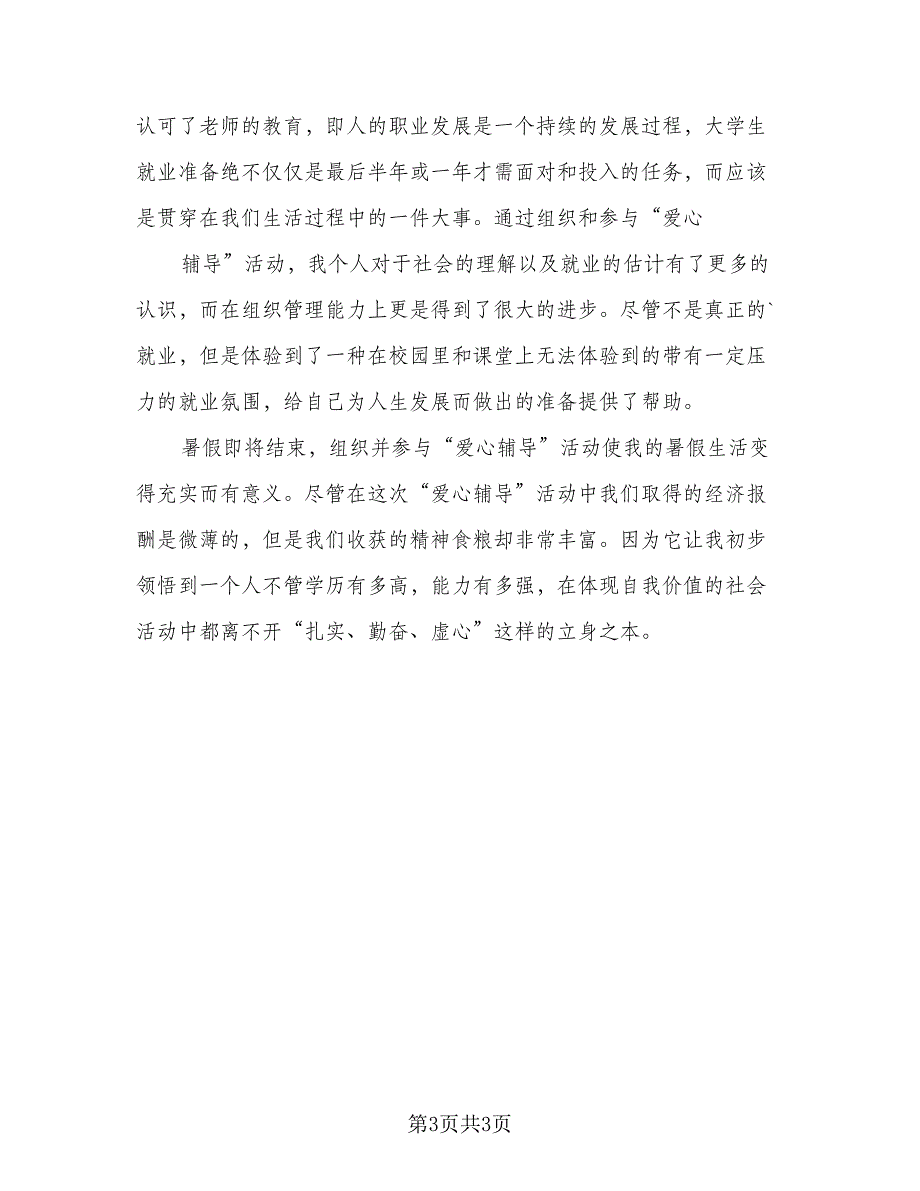 认可了老师的教育，即人的职业发展是一个持续的发展过程，大学生
就业准备绝不仅仅是最后半年或一年才需面对和投入的任务，而应该
是贯穿在我们生活过程中的一件大事。通过组织和参与“爱心
辅导”活动，我个人对于社会的理解以及就业的估计有了更多的
认识，而在组织管理能力上更是得到了很大的进步。尽管不是真正的`
就业，但是体验到了一种在校园里和课堂上无法体验到的带有一定压
力的就业氛围，给自己为人生发展而做出的准备提供了帮助。
暑假即将结束，组织并参与“爱心辅导”活动使我的暑假生活变
得充实而有意义。尽管在这次“爱心辅导”活动中我们取得的经济报
酬是微薄的，但是我们收获的精神食粮却非常丰富。因为它让我初步
领悟到一个人不管学历有多高，能力有多强，在体现自我价值的社会
活动中都离不开“扎实、勤奋、虚心”这样的立身之本。
第3页共3页